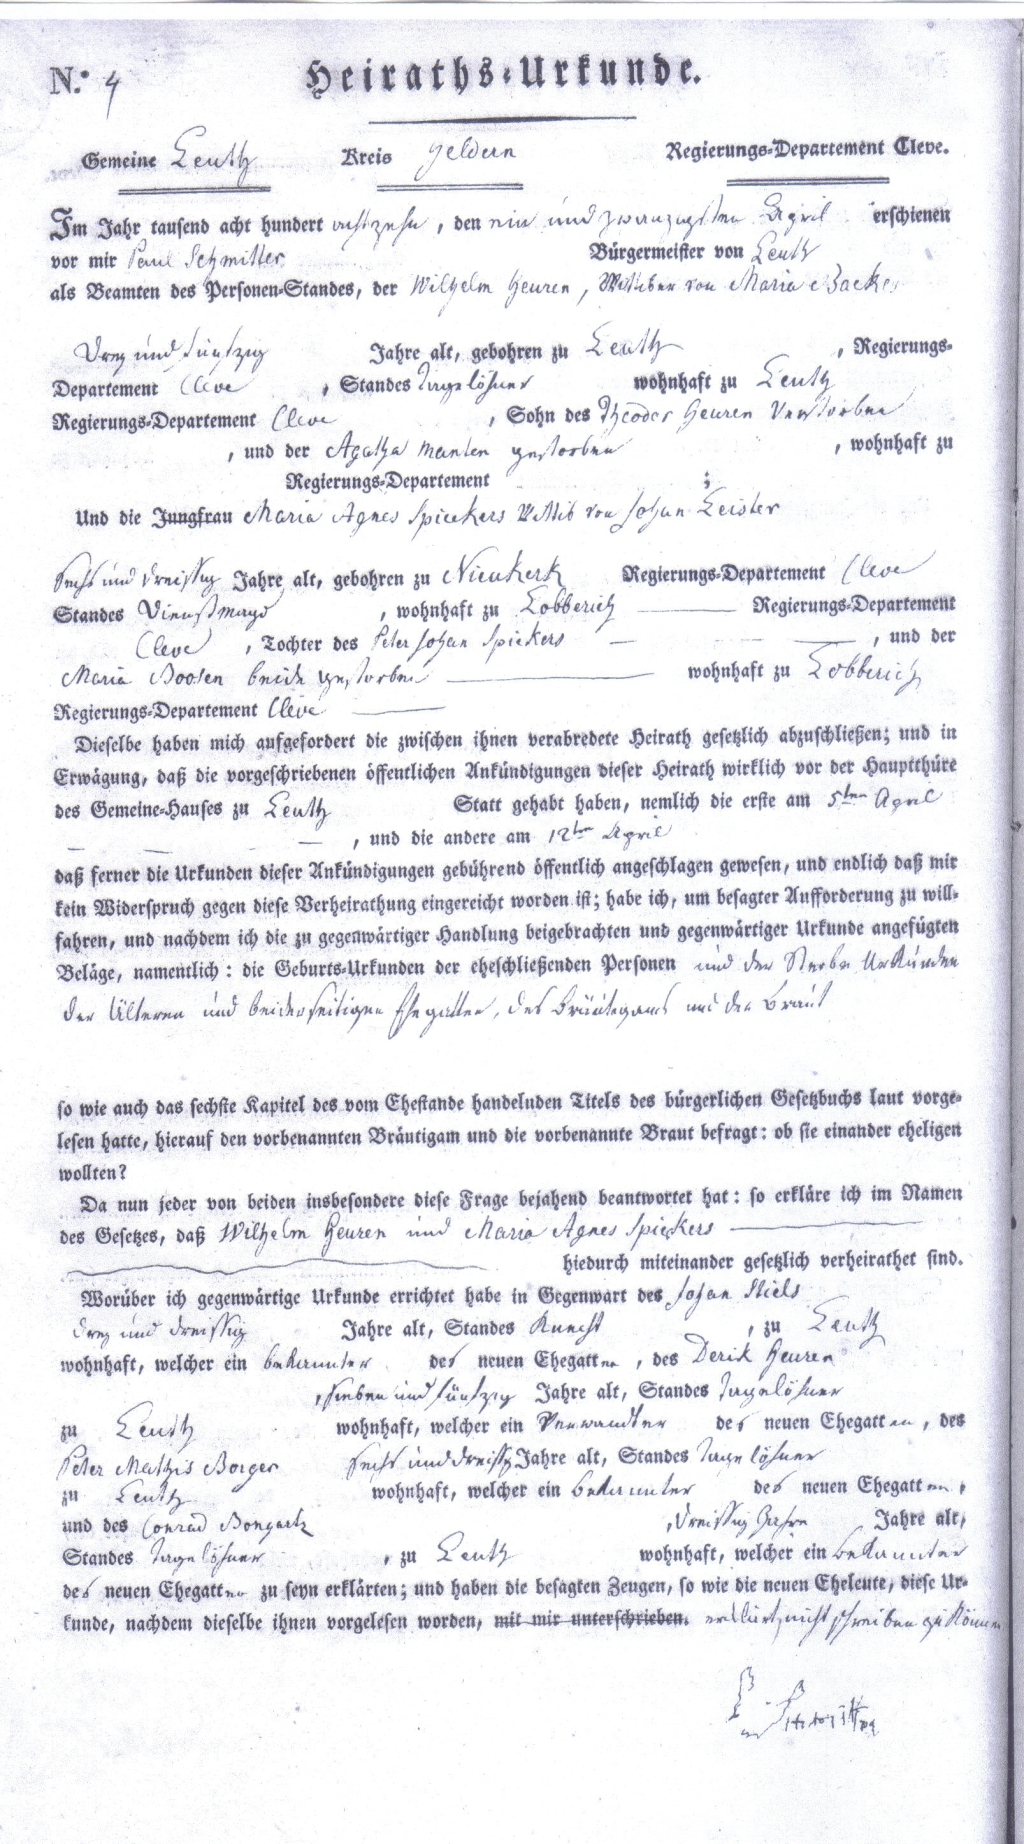 N.o 4 Heiraths-Urkunde.
Gemeine Leuth Kreis Geldern Regierungs-Departement Cleve.
Im Jahr tausend acht hundert achtzehn, den ein und zwanzigsten April erschienen
vor mir Paul Schmitter Bürgermeister von Leuth
als Beamten des Personen-Standes, der Wilhelm Heuren, Wittiber von Maria Backes
Drey und fünfzig Jahre alt, gebohren zu Leuth, Regierungs-
Departement Cleve, Standes Tagelöhner wohnhaft zu Leuth
Regierungs-Departement Cleve, Sohn des Theodor Heuren Verstorben
, und der Agatha Manten gestorben, wohnhaft zu
Regierungs-Departement ;
Und die Jungfrau Maria Agnes Spickers Wittib von Johan Leister
sechs und dreissig Jahre alt, gebohren zu Nieukerk Regierungs-Departement Cleve
Standes Dienstmagd, wohnhaft zu Lobberich Regierungs-Departement
Cleve, Tochter des Peter Johan Spickers, und der
Maria Boosen beide gestorben wohnhaft zu Lobberich
Regierungs-Departement Cleve
Dieselbe haben mich aufgefordert die zwischen ihnen verabredete Heirath gesetzlich abzuschließen; und in
Erwägung, daß die vorgeschriebenen öffentlichen Ankündigungen dieser Heirath wirklich vor der Hauptthüre
des Gemeine-Hauses zu Leuth Statt gehabt haben, nemlich die erste am 5ten April
, und die andere am 12ten April
daß ferner die Urkunden dieser Ankündigungen gebührend öffentlich angeschlagen gewesen, und endlich daß mir
kein Widerspruch gegen diese Verheirathung eingereicht worden ist; habe ich, um besagter Aufforderung zu will-
fahren, und nachdem ich die zu gegenwärtiger Handlung beigebrachten und gegenwärtiger Urkunde angefügten
Beläge, namentlich: die Geburts-Urkunden der eheschließenden Personen und der Sterbe Urkunden
der Älteren und beiderseitigen Ehegatten, des Bräutigams und der Braut
so wie auch das sechste Kapitel des vom Ehestande handelnden Titels des bürgerlichen Gesetzbuchs laut vorge-
lesen hatte, hierauf den vorbenannten Bräutigam und die vorbenannte Braut befragt: ob sie einander eheligen
wollten?
Da nun jeder von beiden insbesondere diese Frage bejahend beantwortet hat: so erkläre ich im Namen
des Gesetzes, daß Wilhelm Heuren und Maria Agnes Spickers
hiedurch miteinander gesetzlich verheirathet sind.
Worüber ich gegenwärtige Urkunde errichtet habe in Gegenwart des Johan
drey und dreissig Jahre alt, Standes Knecht, zu Leuth
wohnhaft, welcher ein bekannter des neuen Ehegatten, des Derik Heuren
, sieben und fünfzig Jahre alt, Standes Tagelöhner
zu Leuth wohnhaft, welcher ein Verwandter des neuen Ehegatten, des
Peter Mathis Borger sechs und dreissig Jahre alt, Standes Tagelöhner
zu Leuth wohnhaft, welcher ein bekannter des neuen Ehegatten,
und des Conrad Bongartz, dreissig Jahre Jahre alt,
Standes Tagelöhner, zu Leuth wohnhaft, welcher ein bekannter
des neuen Ehegatten zu seyn erklärten; und haben die besagten Zeugen, so wie die neuen Eheleute, diese Ur-
kunde, nachdem dieselbe ihnen vorgelesen worden, mit mir unterschrieben. erklärt, nicht schreiben zu können